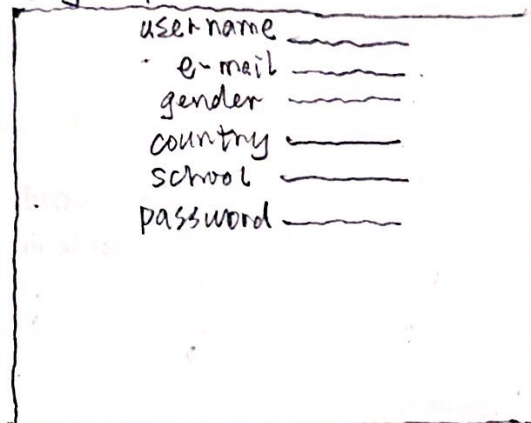 username
e-mail
gender
country
school
password